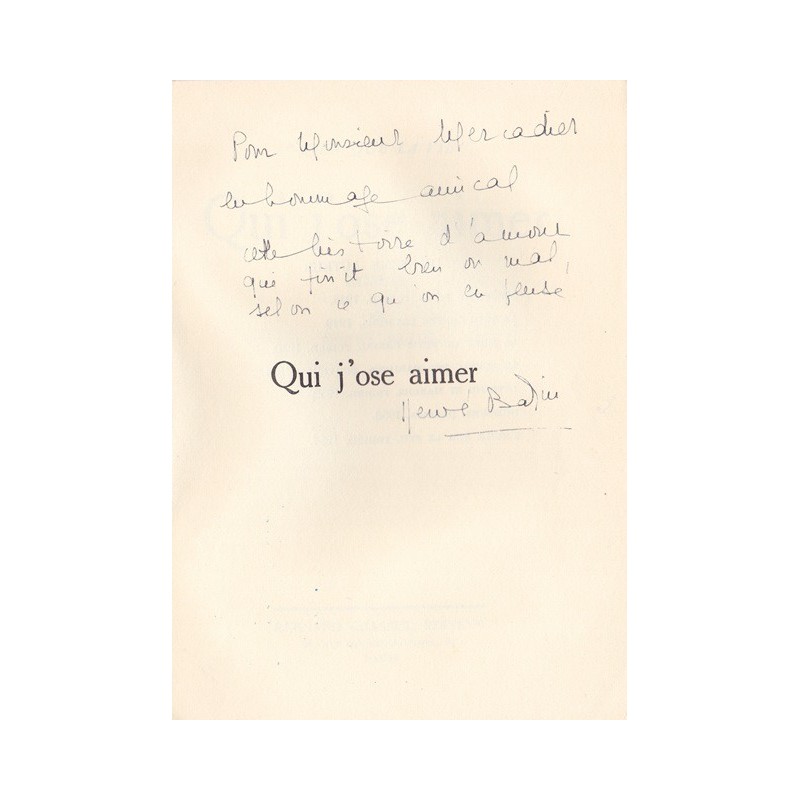 Pour Monsieur Mercadier
en hommage amical
cette histoire d'amour
qui finit bien ou mal,
selon ce qu'on en pense
Qui j'ose aimer
Hervé Bazin